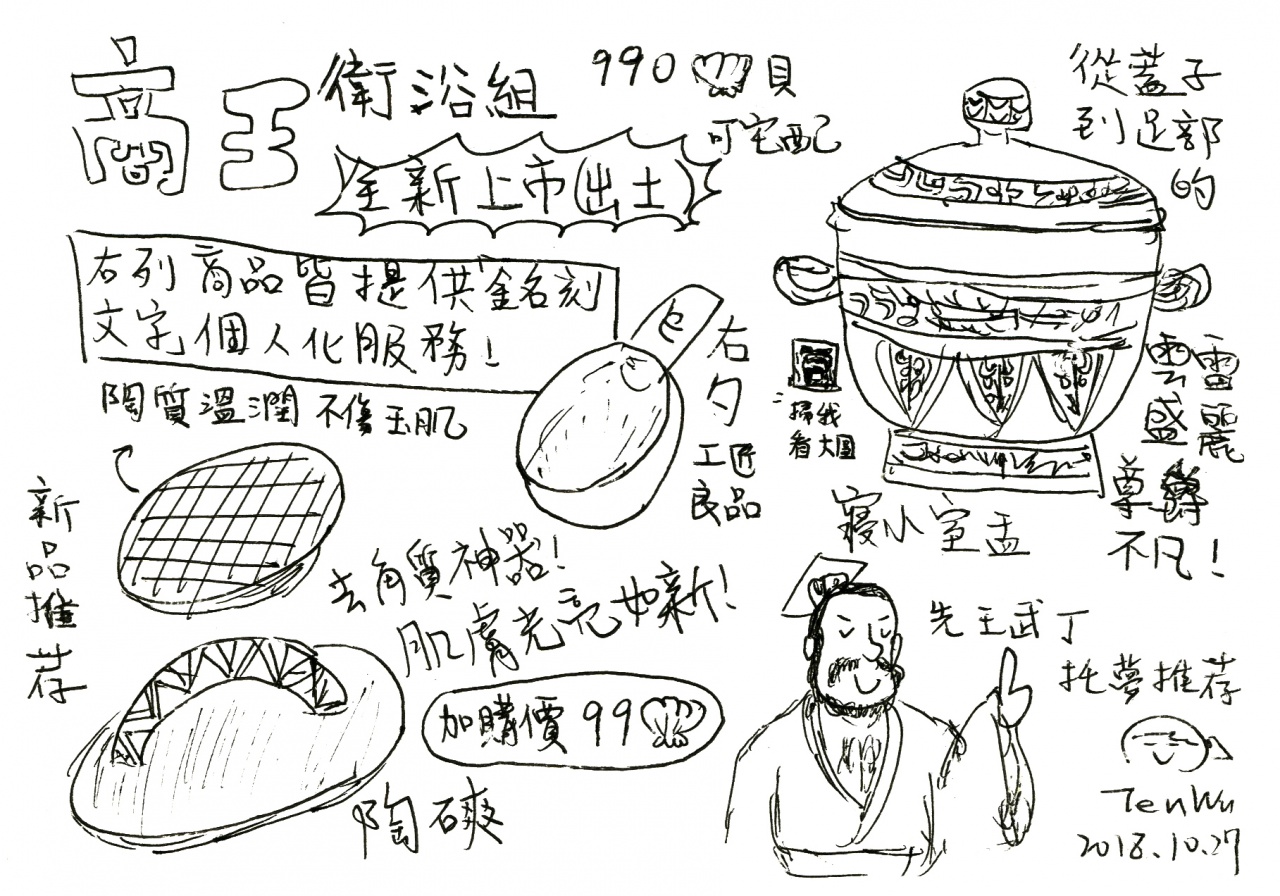 商王
衛浴組
990 貝
可宅配
全新上市(出土)
右列商品皆提供銘刻
文字個人化服務!
陶質溫潤 不傷玉肌
新品推荐
去角質神器!
肌膚光亮如新!
加購價 99
陶磢
右勺
工匠
良品
從蓋子
到足部
的
雲雷
盛麗
尊爵
不凡!
掃我
看大圖
寢小室盂
先王武丁
托夢推荐
TenWu
2018.10.27